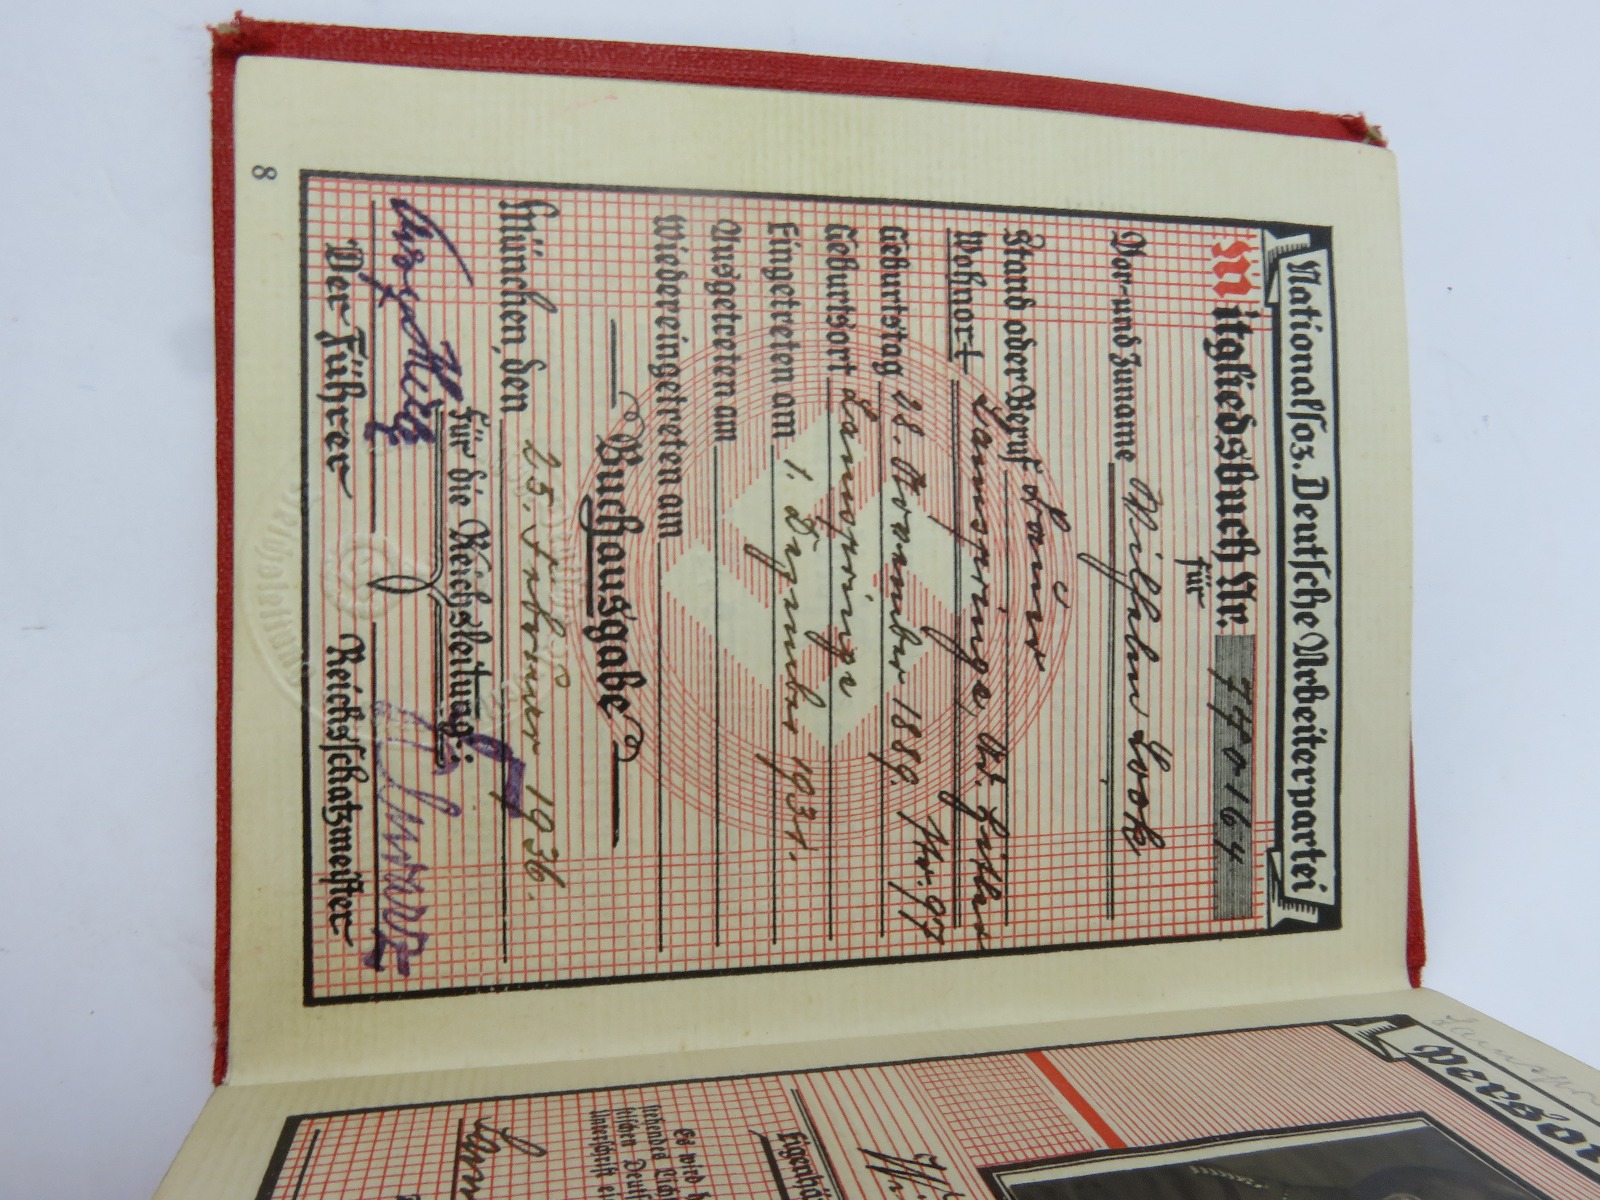 Nationalsoz. Deutsche Arbeiterpartei
Mitgliedsbuch Nr. 740164
für
Vor- und Zuname Wilhelm
Stand oder Beruf
Wohnort Lamspringe, Ad. Hitler Str. 97
Geburtstag 28. November 1889.
Geburtsort Lamspringe
Eingetreten am 1. Dezember 1931.
Ausgetreten am
Wiedereingetreten am
Buchausgabe
München, den 25. Februar 1936.
Für die Reichsleitung:
Der Führer Reichsschatzmeister
8
Es wird h